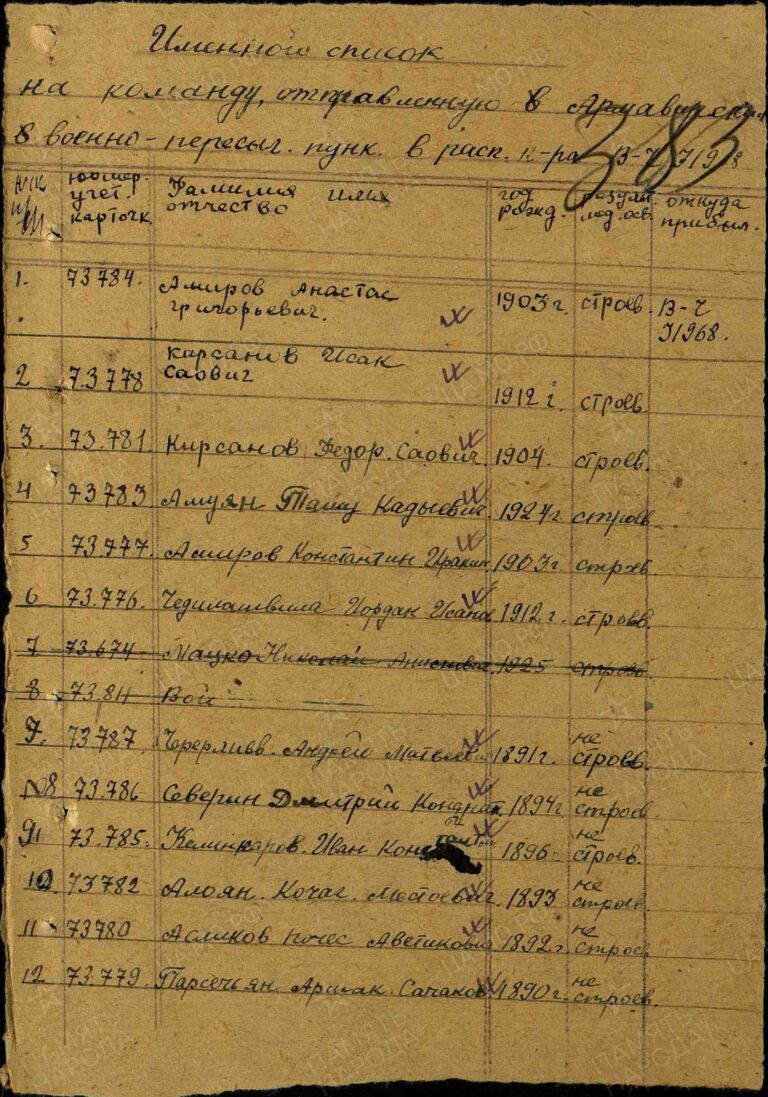 Именной список
на команду, отправленную в Армавирский
8 военно-пересыг. пунк. в расп. к-ра В-Ч 71928
383
№№ п/п номер. учет. карточк. Фамилия имя отчество год рожд. результ. мед. осв. откуда прибыл.
1. 73784. Амиров Анастас Григорьевич. 1903 г. строев. В-Ч 71968.
2 73.778 Кирсанов Исак Саович 1912 г. строев.
3. 73.781. Кирсанов Федор. Саович 1904. строев.
4 73783 Амуян Ташу Кадыевич. 1924 г. строев
5 73.777. Амиров Константин 1903 г. строев.
6 73.776. Чедилашвила Иордан 1912 г. строев.
7 73.674 Мацко Николай 1925 строев.
8 73.811 Вой
7. 73787. Андрей Матвеевич 1891 г. не строев.
8 73.786 Северин Дмитрий Кондрат 1894 г не строев
9 73.785. Иван Константин 1896 не строев.
10. 73782 Алоян. Кочаг. Мстоевич. 1893 не строев.
11 73780 Асликов Почес Аветикович 1892 г. не строев
12 73.779. Парсечьян Аршак Сачаков 1890 г. не строев.
ПАМЯТЬ НАРОДА
ЦАМО.РФ